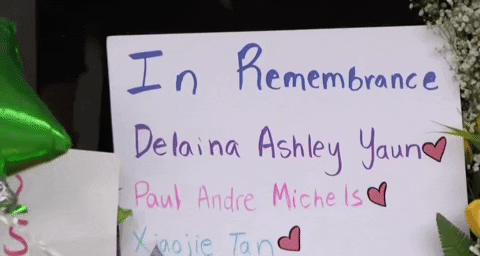 In Remembrance
Delaina Ashley Yaun
Paul Andre Michels
Xiaojie Tan
S